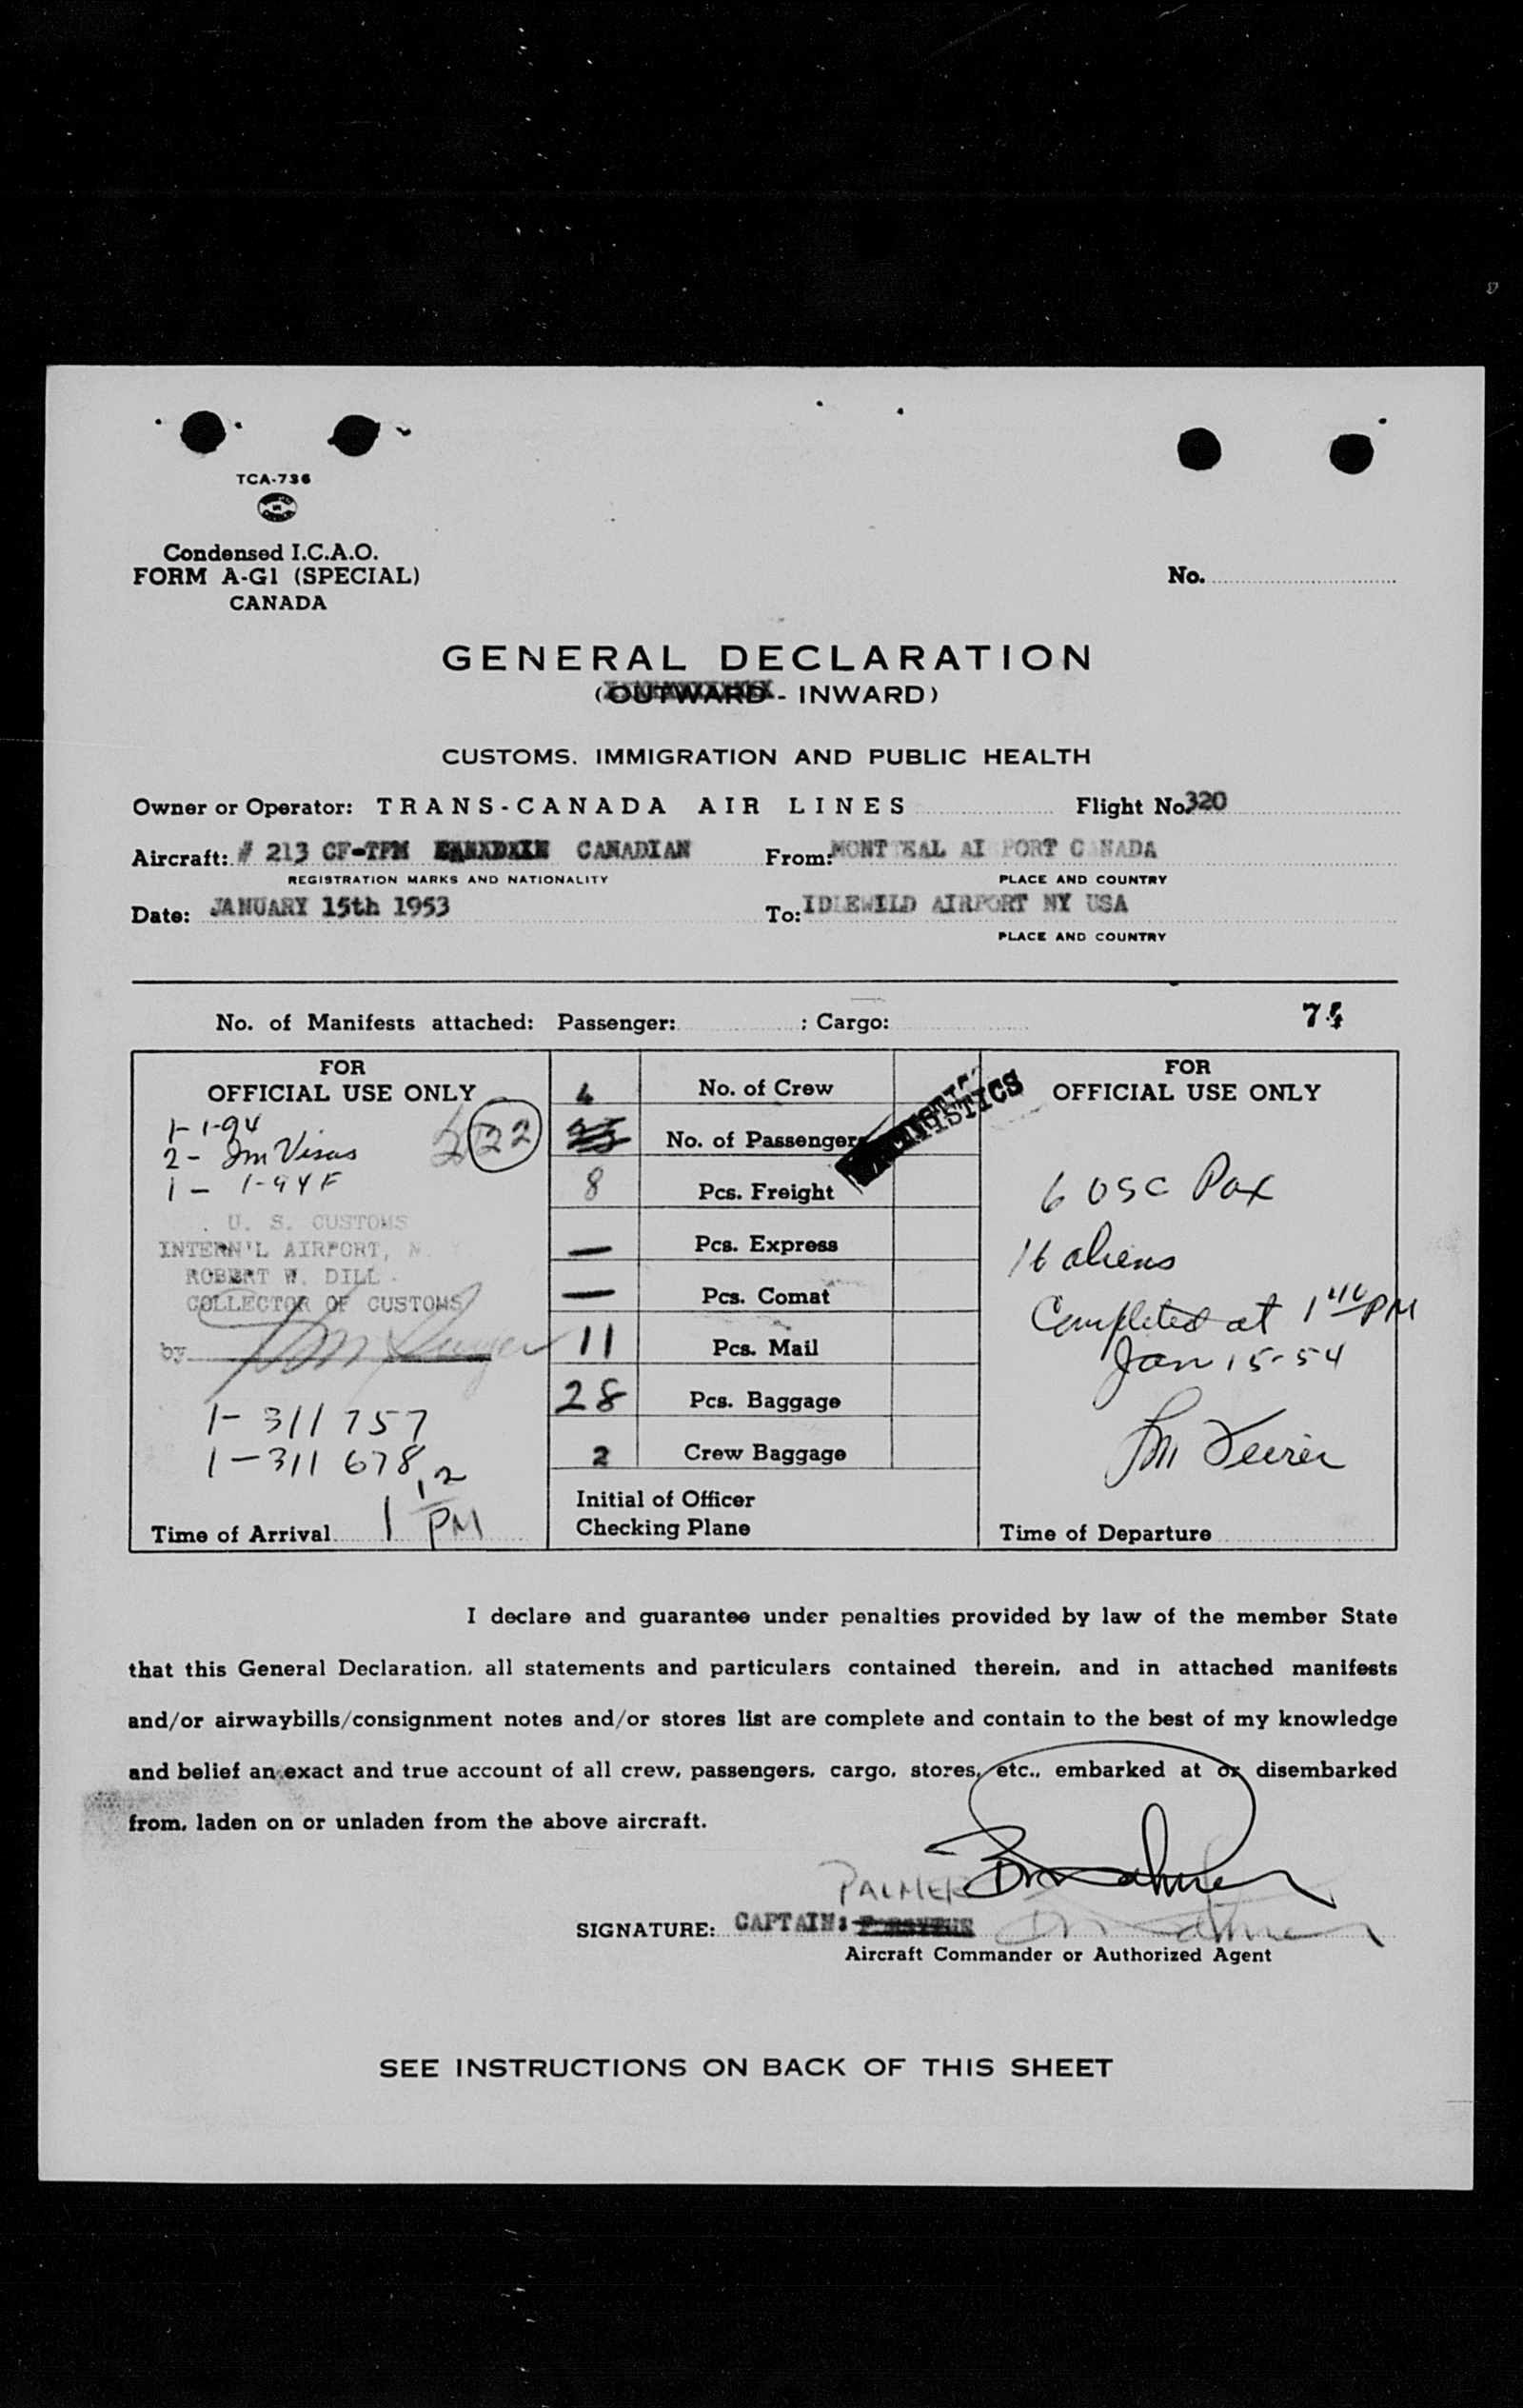 TCA-736
Condensed I.C.A.O.
FORM A-G1 (SPECIAL)
CANADA
No.
GENERAL DECLARATION
(OUTWARD - INWARD)
CUSTOMS, IMMIGRATION AND PUBLIC HEALTH
Owner or Operator: TRANS-CANADA AIR LINES Flight No. 320
Aircraft: # 213 CF-TPM CANADIAN From: MONT EAL AI PORT C NADA
REGISTRATION MARKS AND NATIONALITY PLACE AND COUNTRY
Date: JANUARY 15th 1953 To: IDLEWILD AIRPORT NY USA
PLACE AND COUNTRY
No. of Manifests attached: Passenger: ; Cargo: 74
FOR
OFFICIAL USE ONLY
1- 1-94
2- Im Visas
1- 1-94F
22
U. S. CUSTOMS
INTERN'L AIRPORT, N.
ROBERT W. DILL
COLLECTOR OF CUSTOMS
by
1- 311757
1- 311678
Time of Arrival 1 12 PM
4 No. of Crew
No. of Passengers
8 Pcs. Freight
— Pcs. Express
— Pcs. Comat
11 Pcs. Mail
28 Pcs. Baggage
2 Crew Baggage
Initial of Officer
Checking Plane
STATISTICS
FOR
OFFICIAL USE ONLY
6 USC Pax
16 aliens
Completed at 1 40 PM
Jan 15-54
Time of Departure
I declare and guarantee under penalties provided by law of the member State
that this General Declaration, all statements and particulars contained therein, and in attached manifests
and/or airwaybills/consignment notes and/or stores list are complete and contain to the best of my knowledge
and belief an exact and true account of all crew, passengers, cargo, stores, etc., embarked at or disembarked
from, laden on or unladen from the above aircraft.
PALMER
SIGNATURE: CAPTAIN:
Aircraft Commander or Authorized Agent
SEE INSTRUCTIONS ON BACK OF THIS SHEET